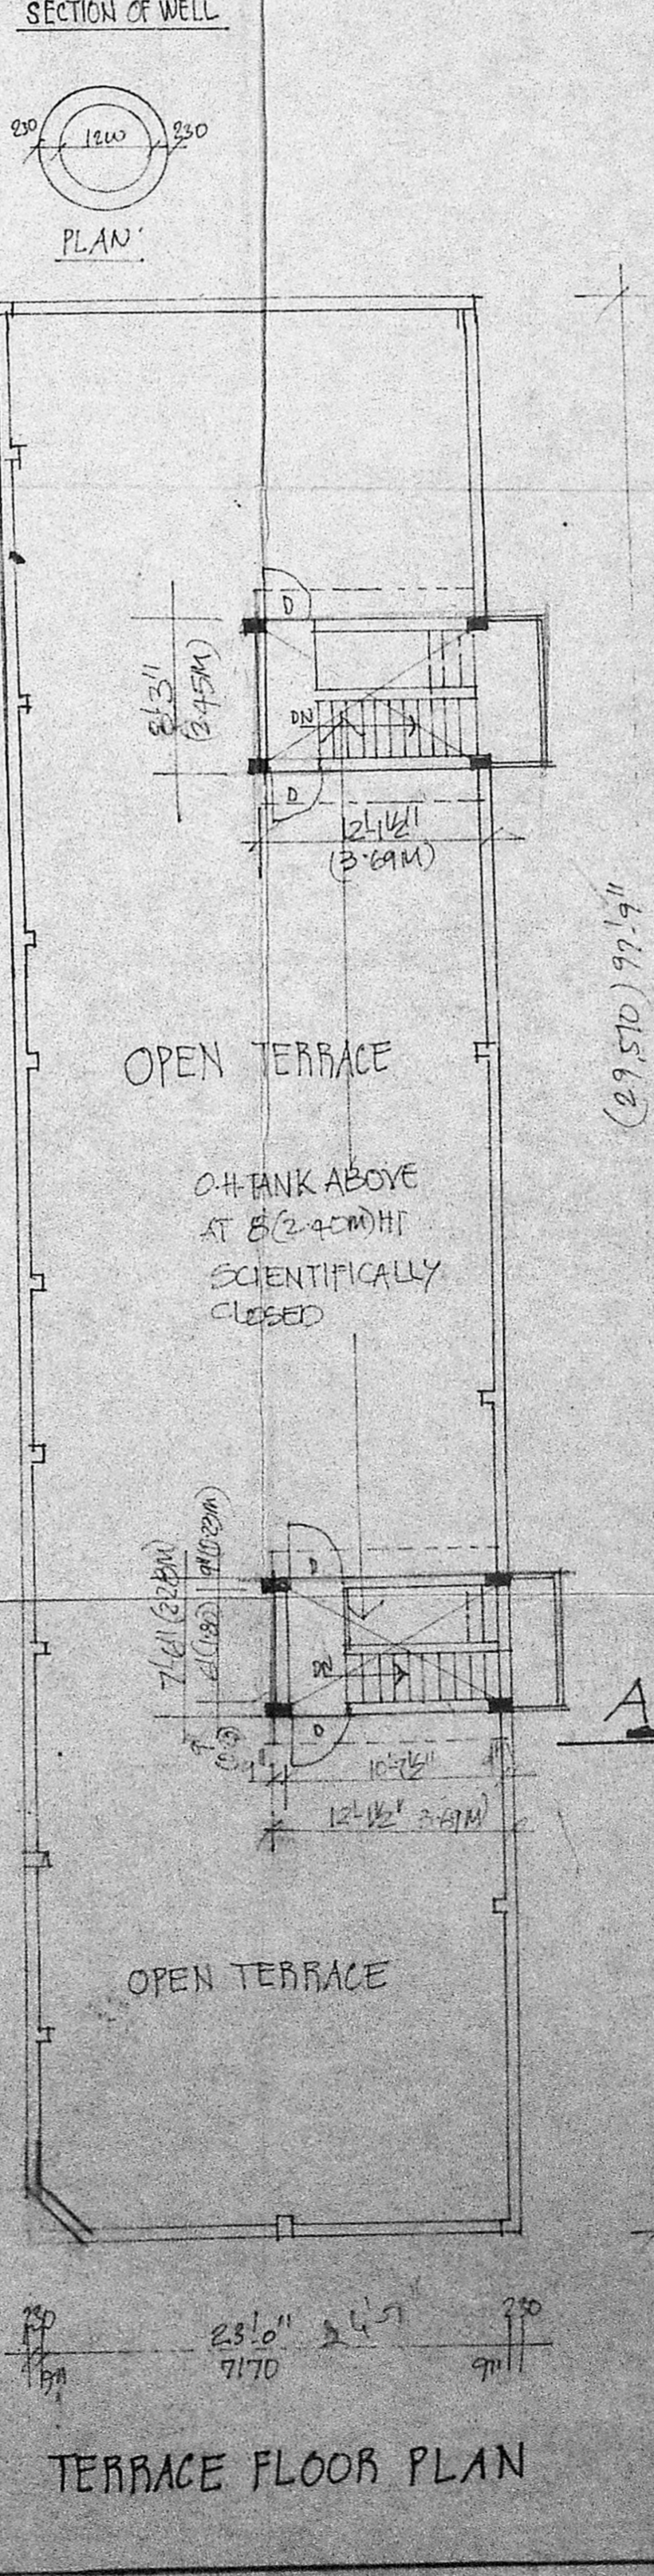 SECTION OF WELL
230 1200 230
PLAN
D
8'-3"
(2.45M)
DN
D
12'-1½"
(3.69M)
(29,570) 97'-9"
OPEN TERRACE
O.H.TANK ABOVE
AT 8'(2.40M)HT
SCIENTIFICALLY
CLOSED
9"(0.23M)
7'-6"(2.28M)
6'(1.80)
D
DN
A
D
9"
9"
10'-7½"
12'-1½" 3.69M)
OPEN TERRACE
230
23'-0"
230
9"
7170
9"
TERRACE FLOOR PLAN